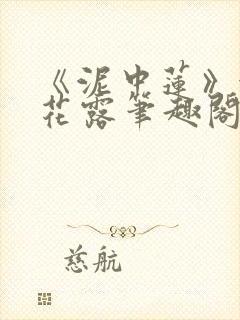 《泥中蓮》
花露筆趣閣
慈航